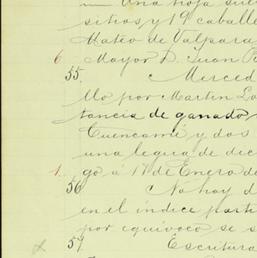 Una hoja suel
sitios y 19 caballe
Mateo de Valpara
6 Mayor D. Juan
55. Merced
llo por Martin Lo
tancia de ganado
Cuencamé y dos
una legua de dic
1. gó á 17 de Enero de
56 No hay d
en el índice part
por equivoco se s
57 Escritura